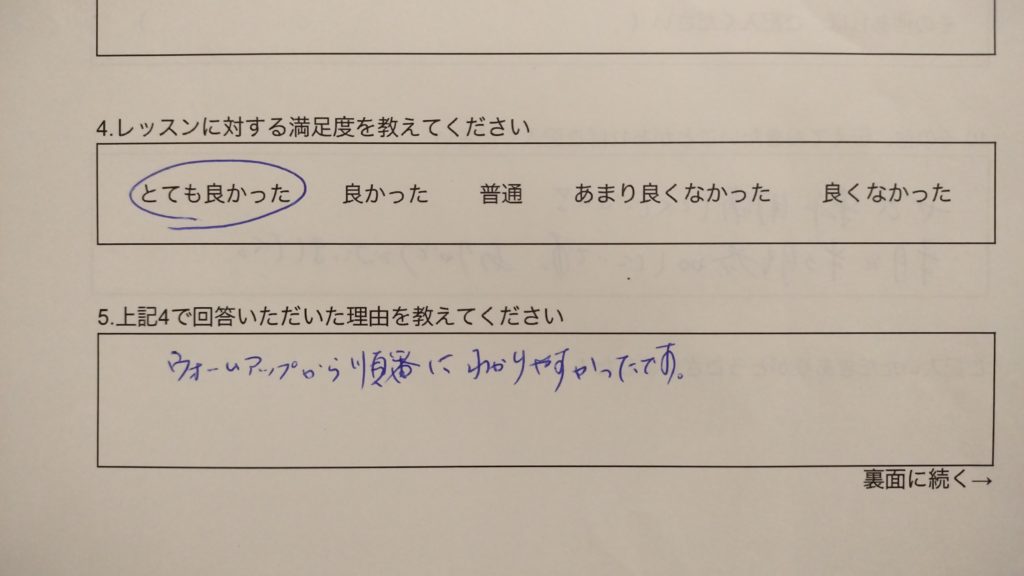 4.レッスンに対する満足度を教えてください
とても良かった 良かった 普通 あまり良くなかった 良くなかった
5.上記4で回答いただいた理由を教えてください
ウォームアップから順番に わかりやすかったです。
裏面に続く→